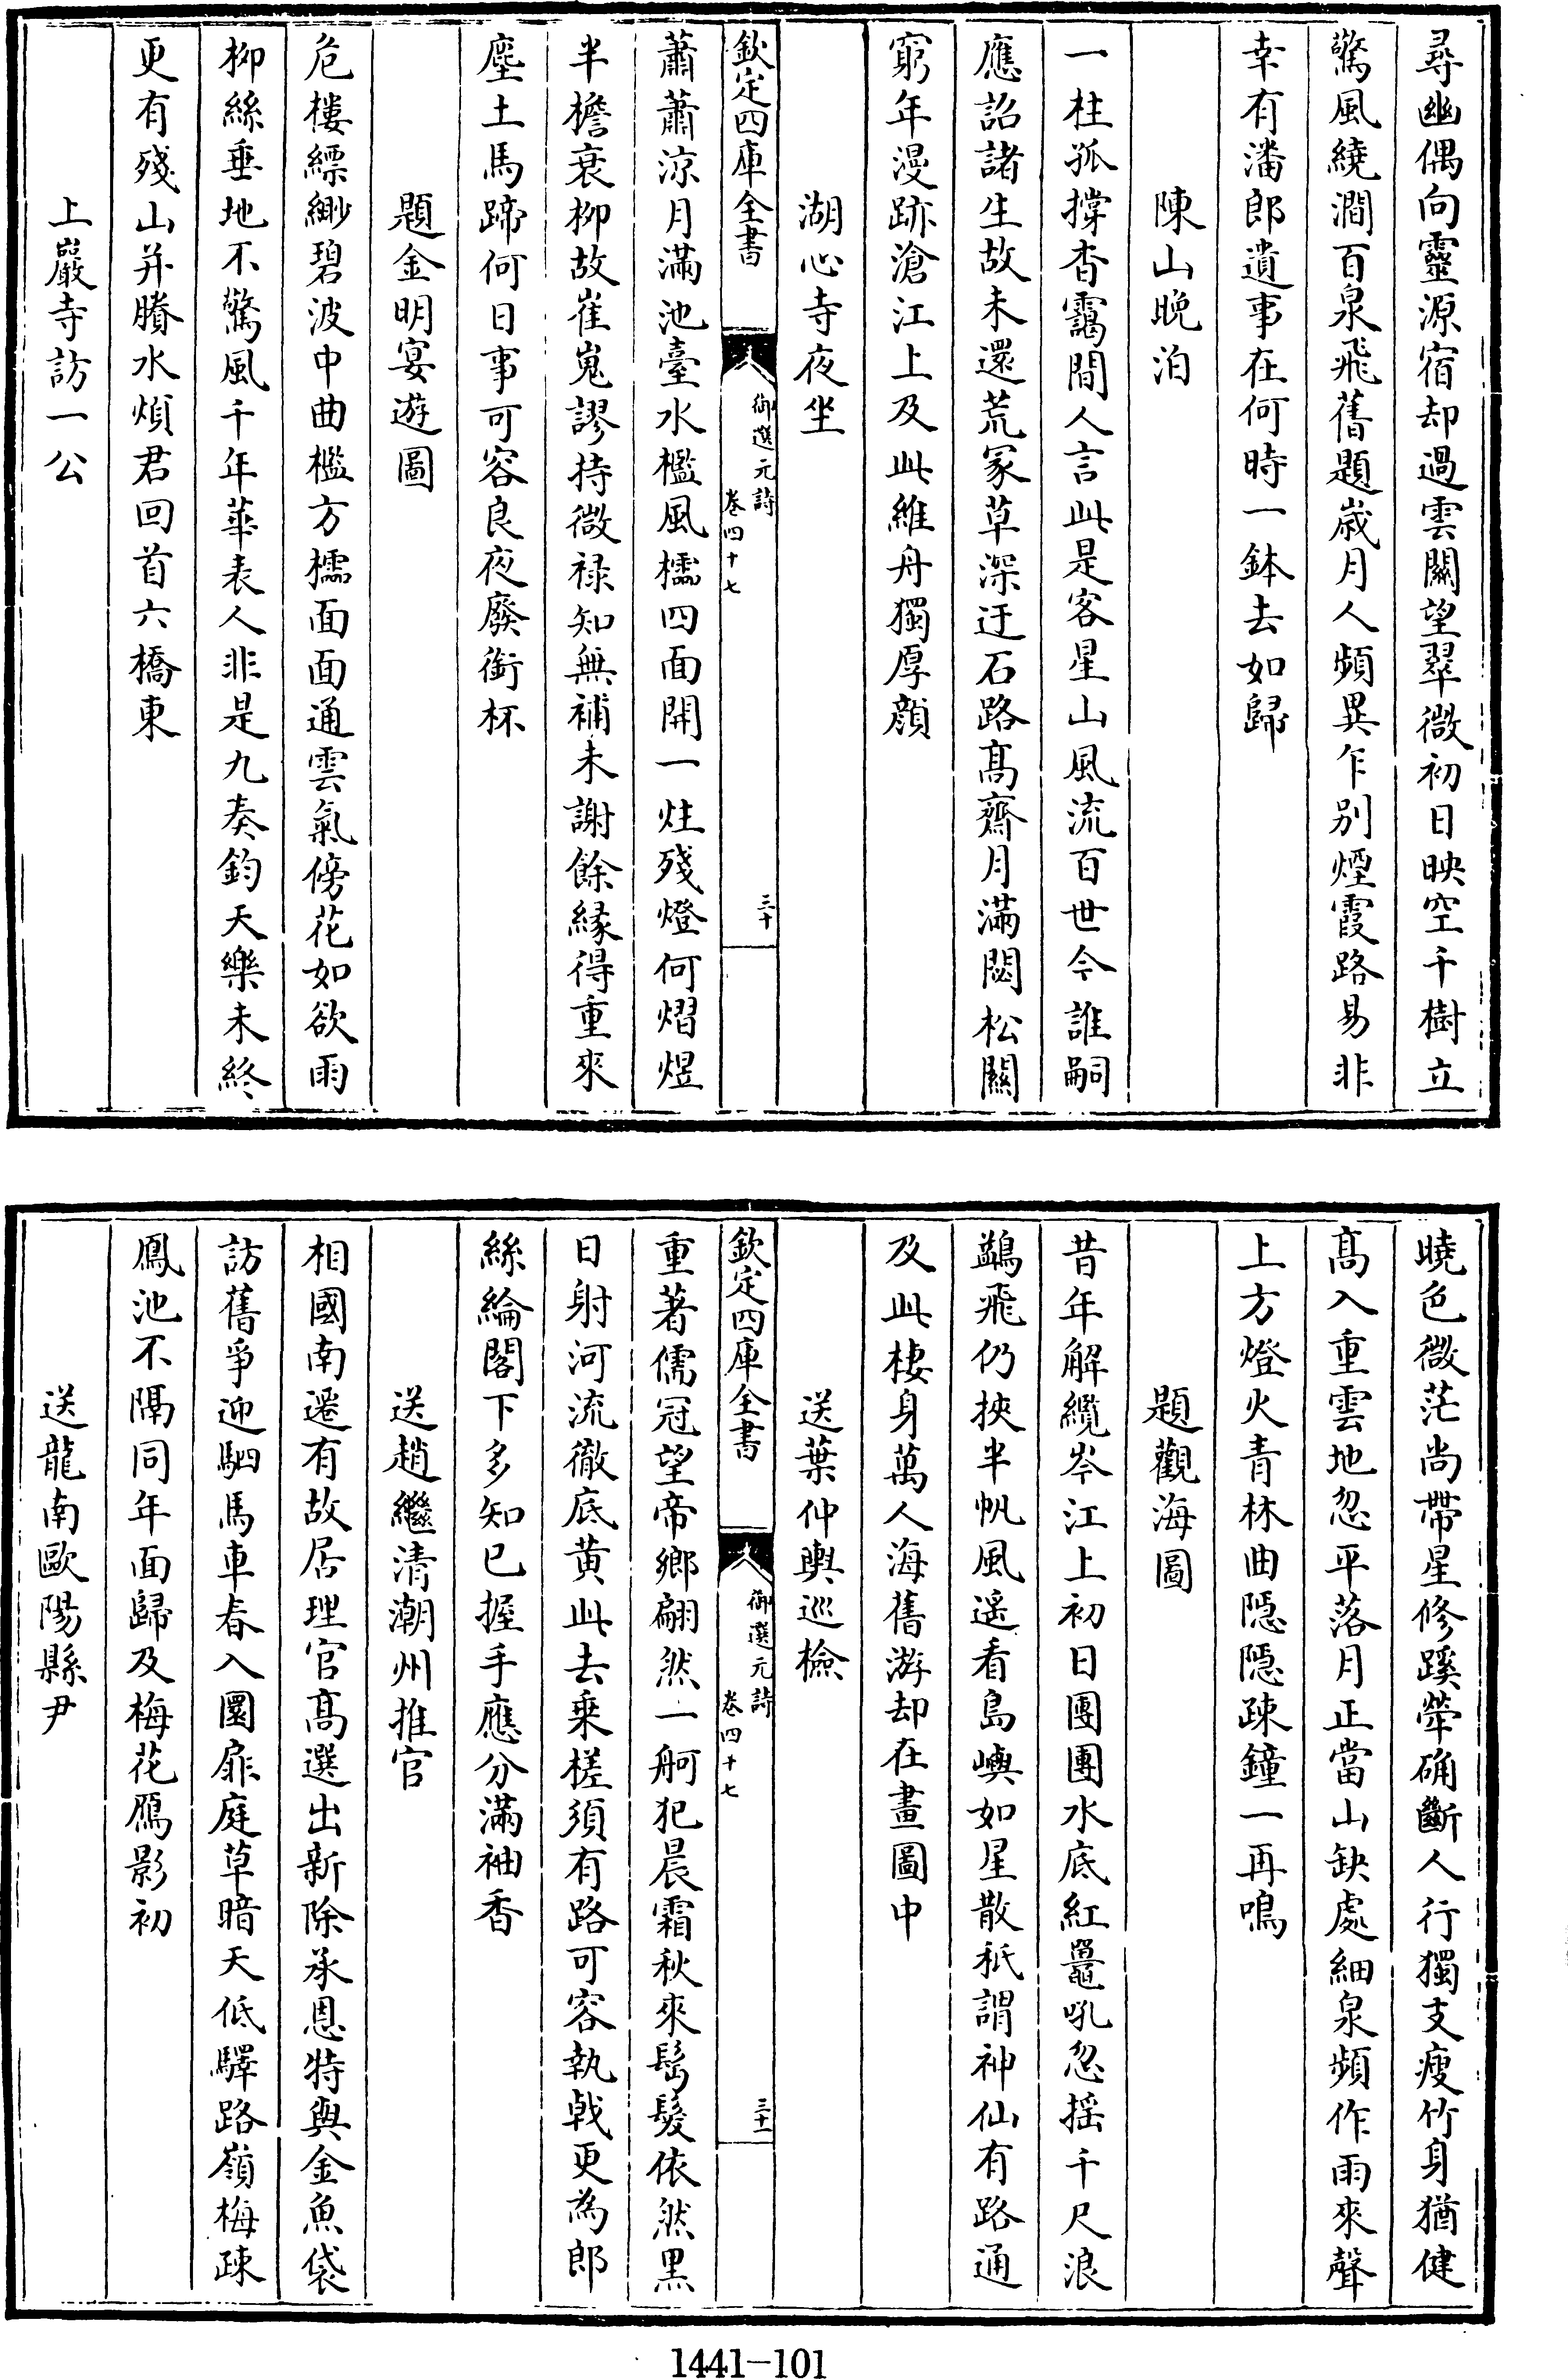 尋幽偶向靈源宿却過雲關望翠微初日映空千樹立
驚風繞澗百泉飛舊題歲月人頻異乍別煙霞路易非
幸有潘郎遺事在何時一鉢去如歸
陳山晚泊
一柱孤撐杳靄間人言此是客星山風流百世今誰嗣
應詔諸生故未還荒冢草深迂石路髙齋月滿閟松關
窮年漫跡滄江上及此維舟獨厚顔
湖心寺夜坐
欽定四庫全書
御選元詩
卷四十七
三十
蕭蕭涼月滿池臺水檻風櫺四面開一炷殘燈何熠煜
半檐衰柳故崔嵬謬持微禄知無補未謝餘緣得重來
塵土馬蹄何日事可容良夜廢銜杯
題金明宴遊圖
危樓縹緲碧波中曲檻方櫺面面通雲氣傍花如欲雨
柳絲垂地不驚風千年華表人非是九奏鈞天樂未終
更有殘山并賸水煩君回首六橋東
上巖寺訪一公
曉色微茫尚帶星修蹊犖确斷人行獨支瘦竹身猶健
髙入重雲地忽平落月正當山缺處細泉頻作雨來聲
上方燈火青林曲隱隱疎鐘一再鳴
題觀海圖
昔年解纜岑江上初日團團水底紅鼉吼忽摇千尺浪
鷁飛仍挾半帆風遥看島嶼如星散秖謂神仙有路通
及此棲身萬人海舊游却在畫圖中
送葉仲輿巡檢
欽定四庫全書
御選元詩
卷四十七
三十一
重著儒冠望帝鄉翩然一舸犯晨霜秋來髩髮依然黒
日射河流徹底黄此去乗槎須有路可容執戟更為郎
絲綸閣下多知已握手應分滿袖香
送趙繼清潮州推官
相國南遷有故居理官髙選出新除承恩特與金魚袋
訪舊爭迎駟馬車春入圜扉庭草暗天低驛路嶺梅疎
鳳池不隔同年面歸及梅花鴈影初
送龍南歐陽縣尹
1441-101